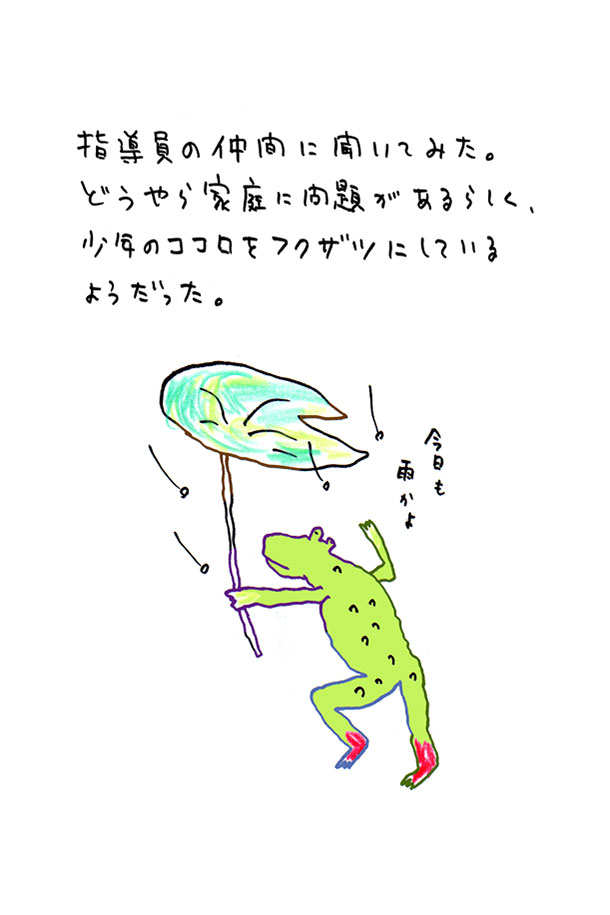 指導員の仲間に聞いてみた。
どうやら家庭に問題があるらしく、
少年のココロをフクザツにしている
ようだった。
今日も
雨かよ